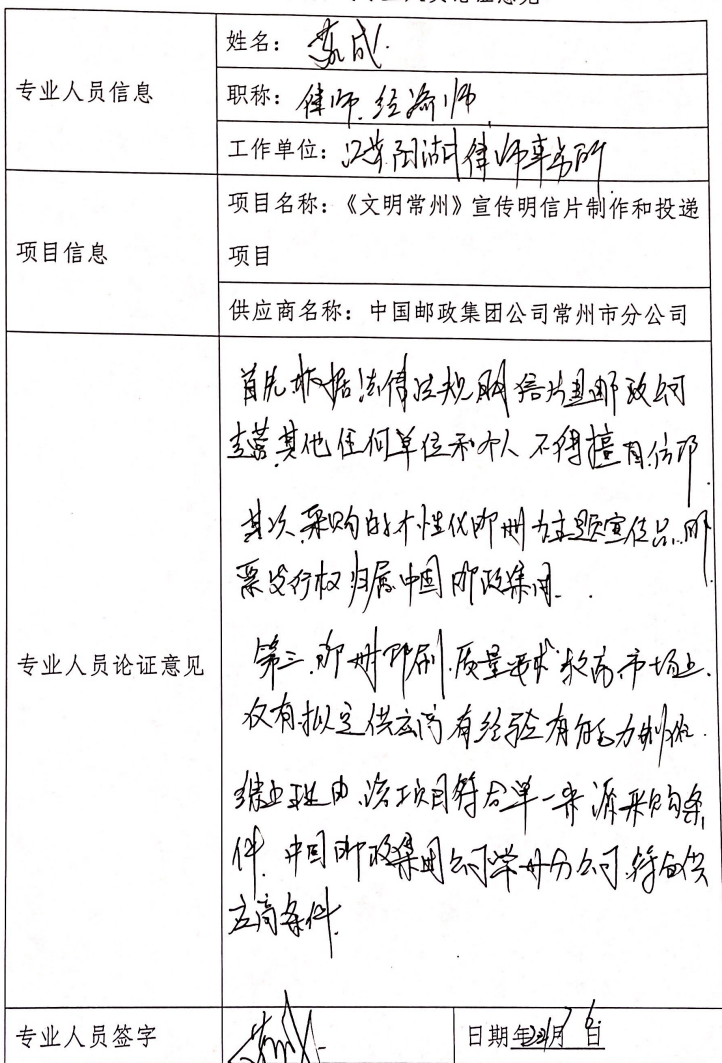 专业人员论证意见
专业人员信息
姓名：苏成
职称：律师.经济师
工作单位：江苏阳湖律师事务所
项目信息
项目名称：《文明常州》宣传明信片制作和投递
项目
供应商名称：中国邮政集团公司常州市分公司
专业人员论证意见
首先根据法律法规明信片是邮政公司
专营.其他任何单位和个人不得擅自仿印.
其次.采购的个性化邮册为主题宣传品.邮
票发行权归属中国邮政集团.
第三.邮册印刷.质量要求较高.市场上.
仅有拟定供应商有经验有能力制作.
综上理由.该项目符合单一来源采购条
件.中国邮政集团公司常州分公司.符合供
应商条件.
专业人员签字
日期 年 月 日